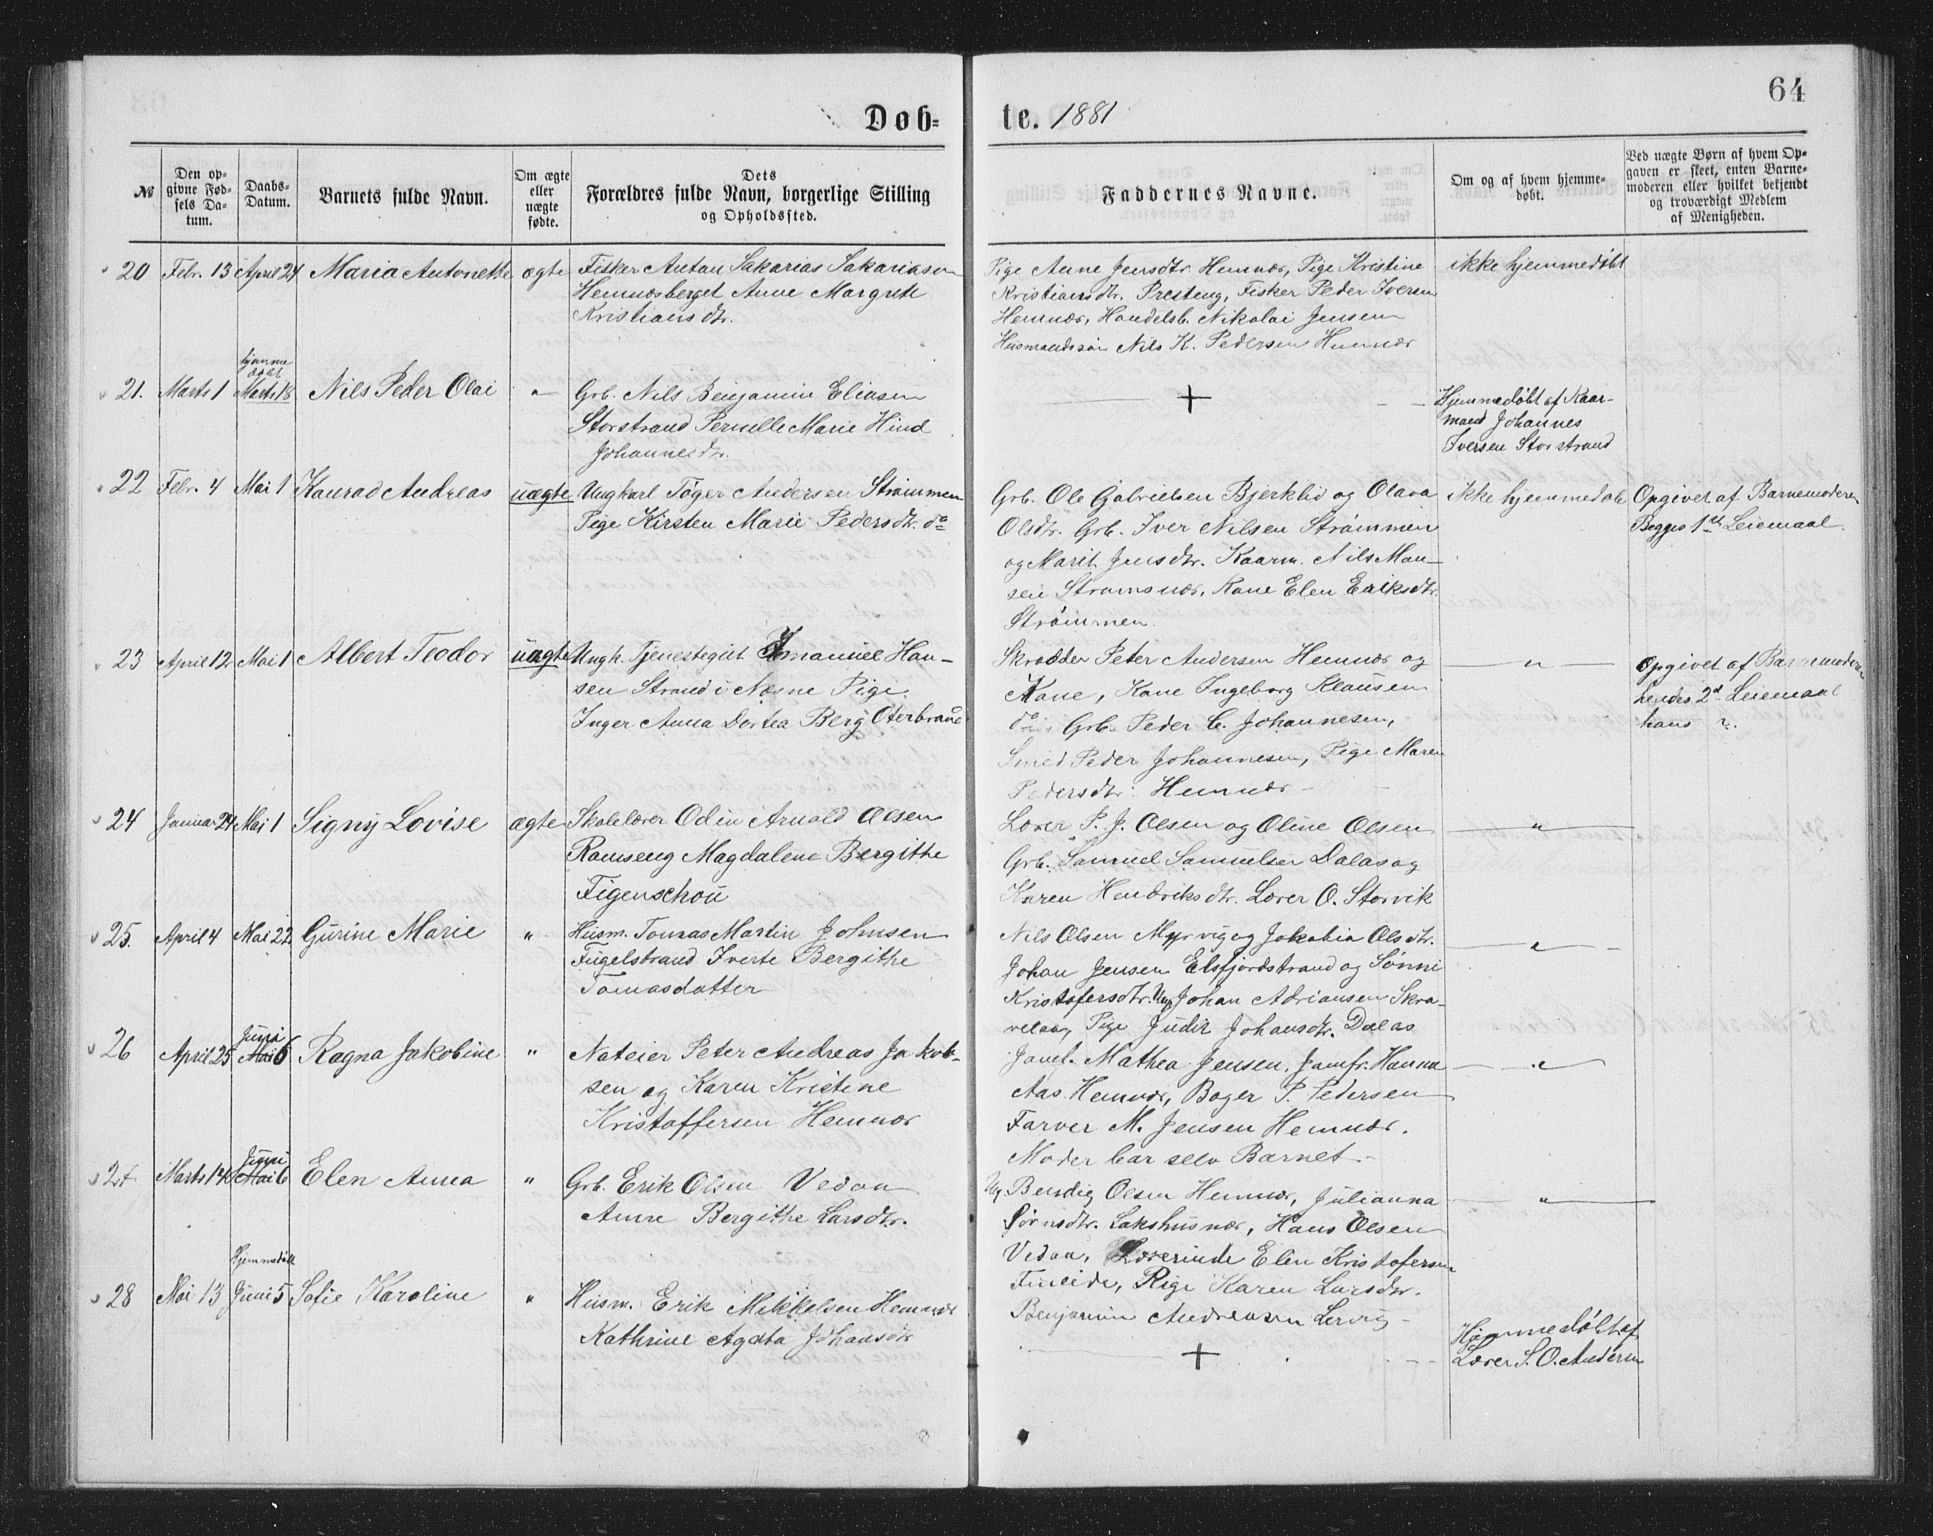 64
Døb= te. 1881
№
Den op-
givne Fød-
sels Da-
tum.
Daabs-
Datum.
Barnets fulde Navn.
Om ægte
eller
uægte
fødte.
Dets
Forældres fulde Navn, borgerlige Stilling
og Opholdssted.
Faddernes Navne.
Om og af hvem hjemme-
døbt.
Ved uægte Børn af hvem Op-
gaven er skeet, enten Barne-
moderen eller hvilket bekjendt
og troværdigt Medlem
af Menigheden.
20 Febr. 13 April 24 Maria Antonette ægte
Fisker Antan Sakarias Sakariasen
Hemnæsberget Anne Margrete
Kristiansdtr.
Pige Anne Jensdtr. Hemnæs, Pige Kristine
Kristiansdtr. Presteng, Fisker Peder Iversen
Hemnæs, Handelsb. Nikolai Jensen
Husmandssøn Nils K. Pedersen Hemnæs
ikke hjemmedøbt
21. Marts 1
hjemme
døbt
Marts 18 Nils Peder Olai "
Grb. Nils Benjamin Eliasen
Storstrand Pernelle Marie Hind
Johannesdtr.
+
Hjemmedøbt af Kaar-
mand Johannes
Iversen Storstrand
22 Febr. 4 Mai 1 Konrad Andreas uægte
Ungkarl Tøger Andersen Strømmen
Pige Kirsten Marie Pedersdtr. do
Grb. Ole Gabrielsen Bjerklid og Olava
Olsdtr. Grb. Iver Nilsen Strømmen
og Marit Jensdtr. Kaarm. Nils Mon-
sen Strømsnæs, Kone Elen Eriksdtr.
Strømmen.
ikke hjemmedøbt
Opgivet af Barnemoderen
Begges 1ste Leiemaal.
23 April 12 Mai 1 Albert Teodor uægte
Ungk. Tjenestegut Imanuel Han-
sen Strand i Næsne Pige
Inger Anna Dortea Berg Oterbrand
Skrædder Peter Andersen Hemnæs og
Kone, Kone Ingeborg Klausen
do Grb. Peder C. Johannesen,
Smed Peder Johannesen, Pige Maren
Pedersdtr. Hemnæs
"
Opgivet af Barnemoderen
hendes 2d Leiemaal
hans ?.
24 Januar 24 Mai 1 Signy Lovise ægte
Skolelærer Odin Arnold Olsen
Ramseng Magdalena Bergithe
Figenschou
Lærer P. J. Olsen og Oline Olsen
Grb. Samuel Samuelsen Dalas og
Karen Hendriksdtr. Lærer O. Storvik
"
25. April 4 Mai 22 Gurine Marie "
Husm. Tomas Martin Johnsen
Fugelstrand Iverte Bergithe
Tomasdatter
Nils Olsen Myrvig og Jakobia Olsdtr.
Johan Jensen Elsfjordstrand og Sønni
Kristofersdtr. Ungk. Johan Adriansen Skra-
velaag Pige Judit Johansdtr. Dalas
"
26 April 25
Juni
Mai 6 Ragna Jakobine "
Nateier Peter Andreas Jakob-
sen og Karen Kristine
Kristoffersen Hemnæs
Jomf. Mathea Jensen, Jomfr. Hanna
Aas Hemnæs, Bager P. Pedersen
Farver M. Jensen Hemnæs.
Moder bar selv Barnet.
"
27 Marts 14
Juni
Mai 6 Elen Anna "
Grb. Erik Olsen Vedaa
Anne Bergithe Larsdtr.
Ung. Bendig Olsen Hemnæs, Julianna
Sørnsdtr. Lakshusnæs, Hans Olsen
Vedaa, Lærerinde Elen Kristofersen
Fineide, Pige Karen Larsdtr.
Benjamin Andreasen Lervig
"
28 Mai 13
Hjemmedøbt
Juni 5 Sofie Karoline "
Husm. Erik Mikkelsen Hemnæs
Kathrine Agata Johansdtr
+
Hjemmedøbt af
Lærer S. O. Andersen